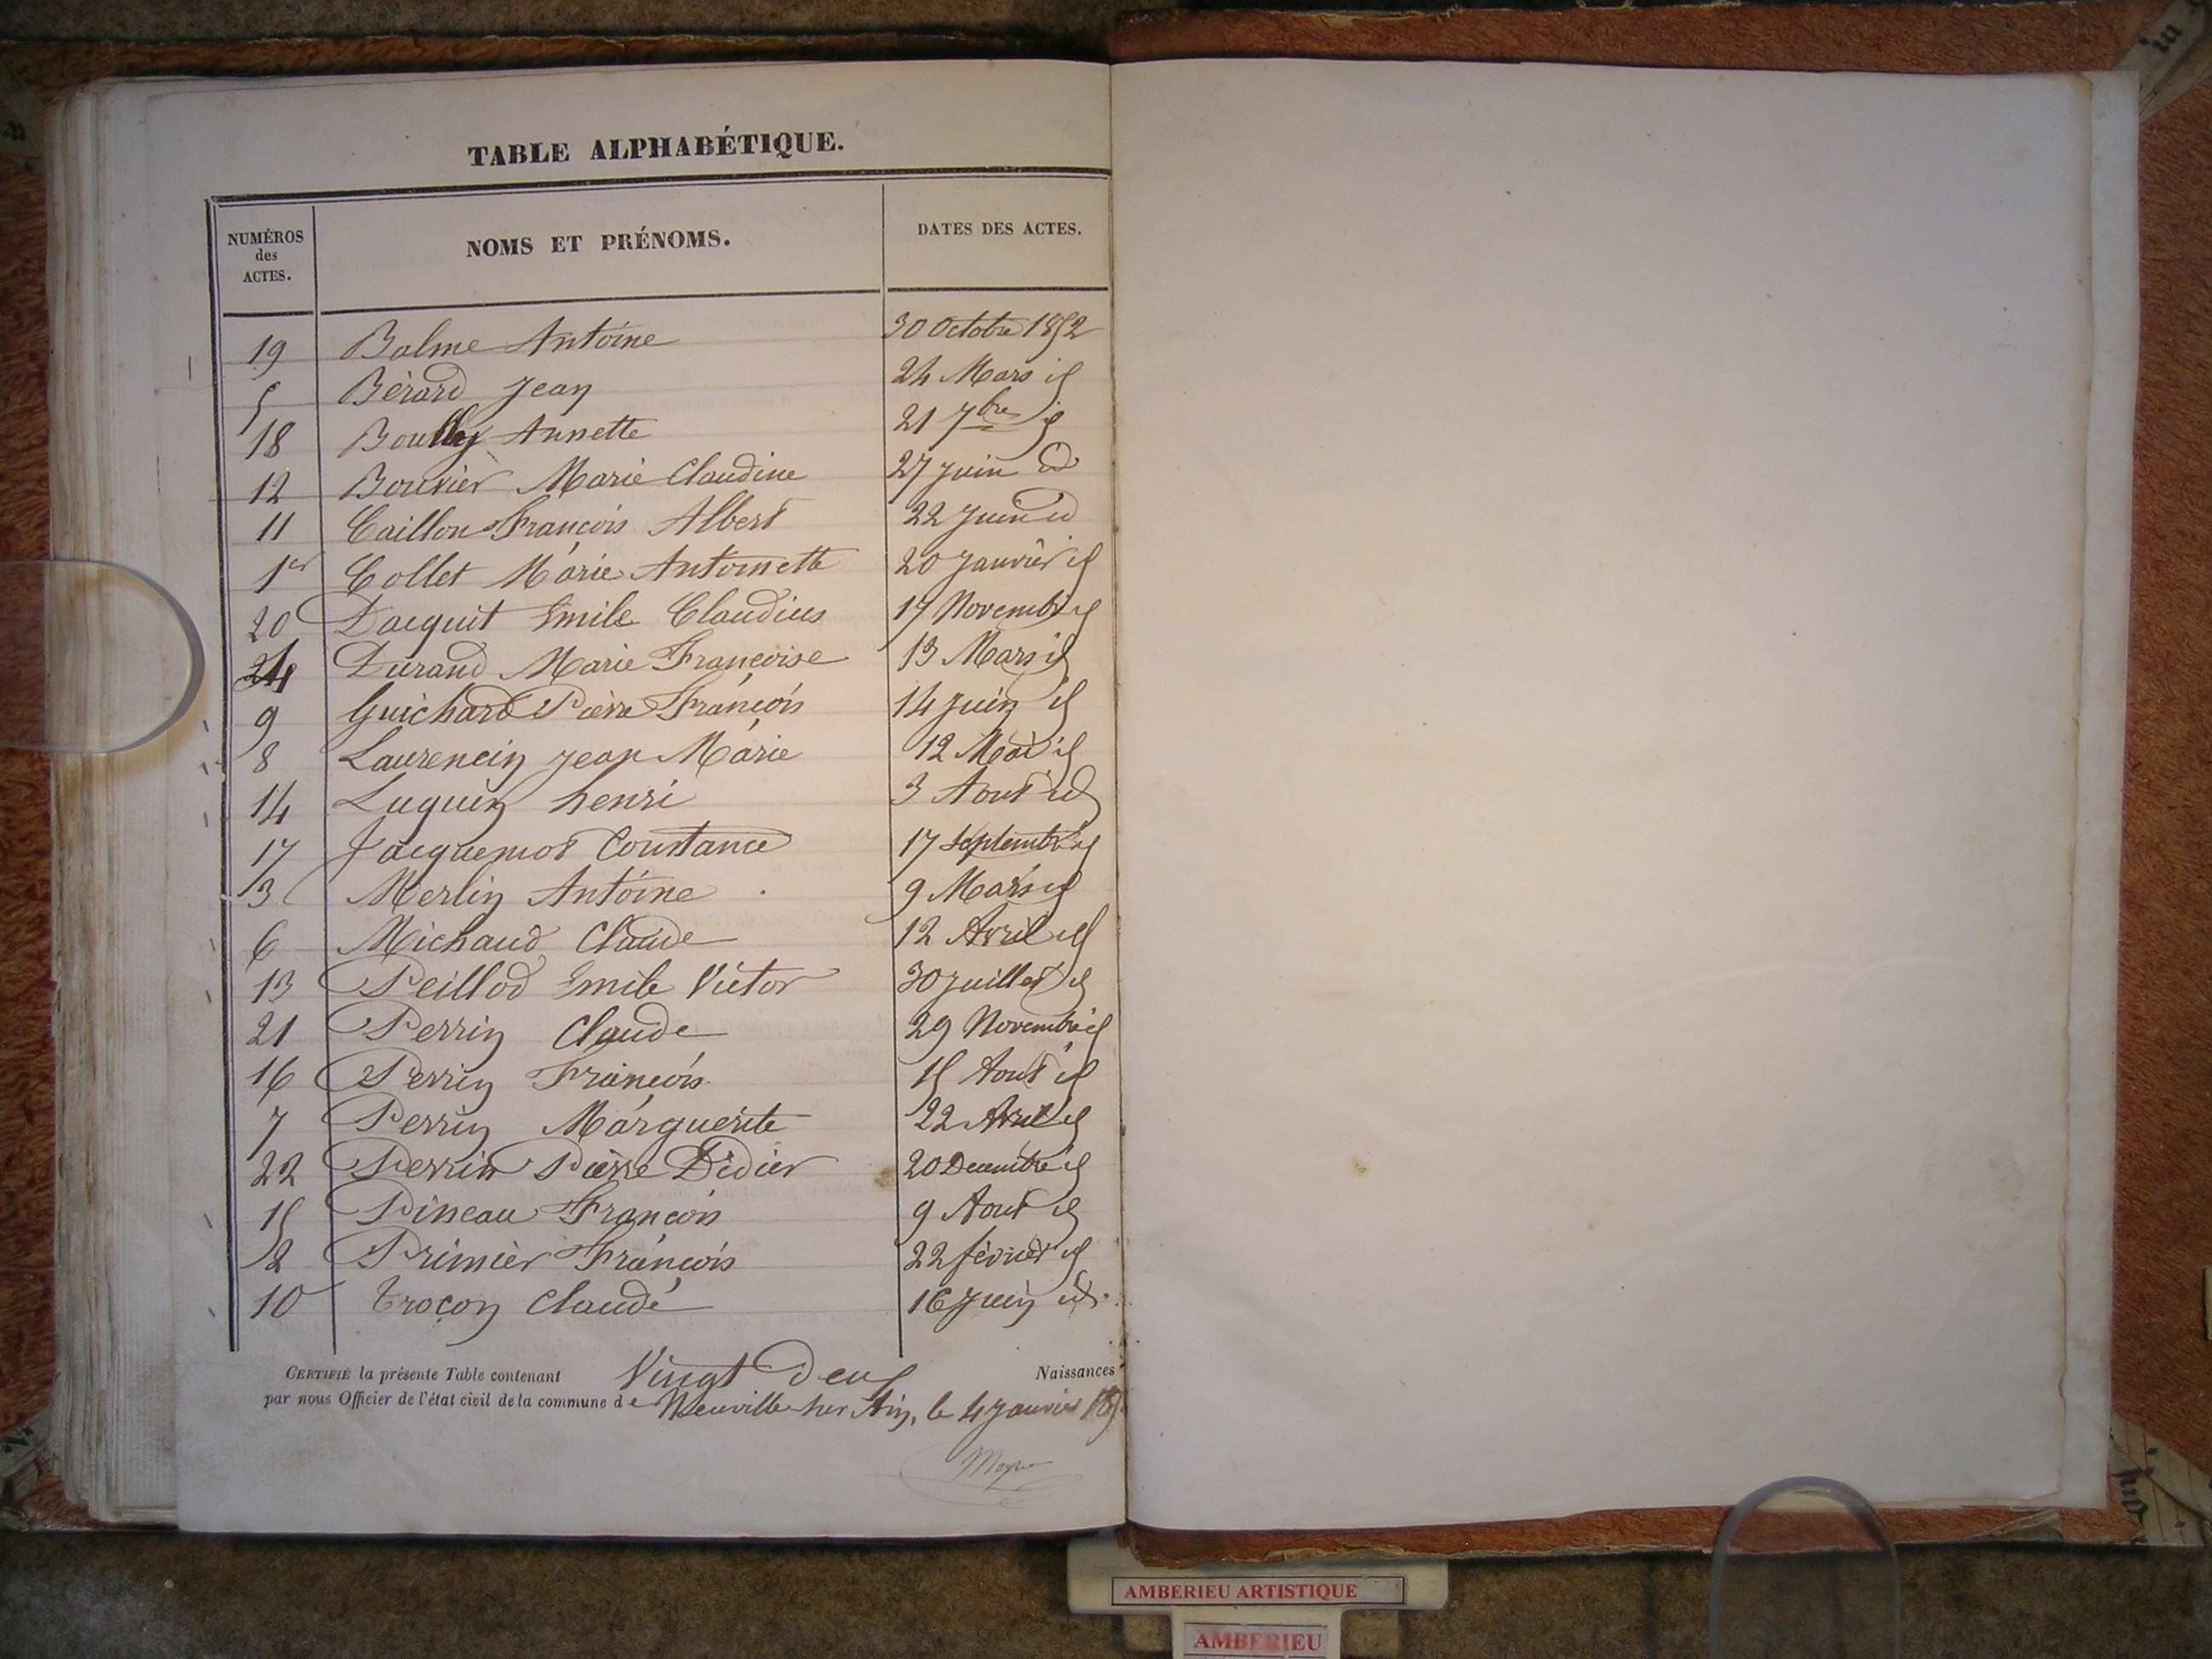 TABLE ALPHABÉTIQUE.
NUMÉROS des ACTES. NOMS ET PRÉNOMS. DATES DES ACTES.
19 Balme Antoine 30 Octobre 1852
5 Bérard Jean 24 Mars id
18 Annette 21 7bre id
12 Bouvier Marie Claudine 27 juin id
11 Caillon François Albert 22 juin id
1er Collet Marie Antoinette 20 Janvier id
20 Dacquit Emile Claudius 17 Novembre id
4 Durand Marie Françoise 13 Mars id
9 Guichard Pierre François 14 Juin id
8 Laurencin Jean Marie 12 Mai id
14 Luquin henri 3 Aout id
17 Jacquemot Constance 17 Septembre id
3 Merlin Antoine 9 Mars id
6 Michaud Claude 12 Avril id
13 Peillod Emile Victor 30 Juillet id
21 Perrin Claude 29 Novembre id
16 Perrin François 15 Aout id
7 Perrin Marguerite 22 Avril id
22 Perrin Pierre Didier 20 Decembre id
15 Pineau François 9 Aout id
2 Primier François 22 février id
10 troçon Claude 16 Juin id.
CERTIFIÉ la présente Table contenant Vingt Deux Naissances
par nous Officier de l'état civil de la commune de Neuville sur Ain, le 4 Janvier
AMBERIEU ARTISTIQUE
AMBERIEU